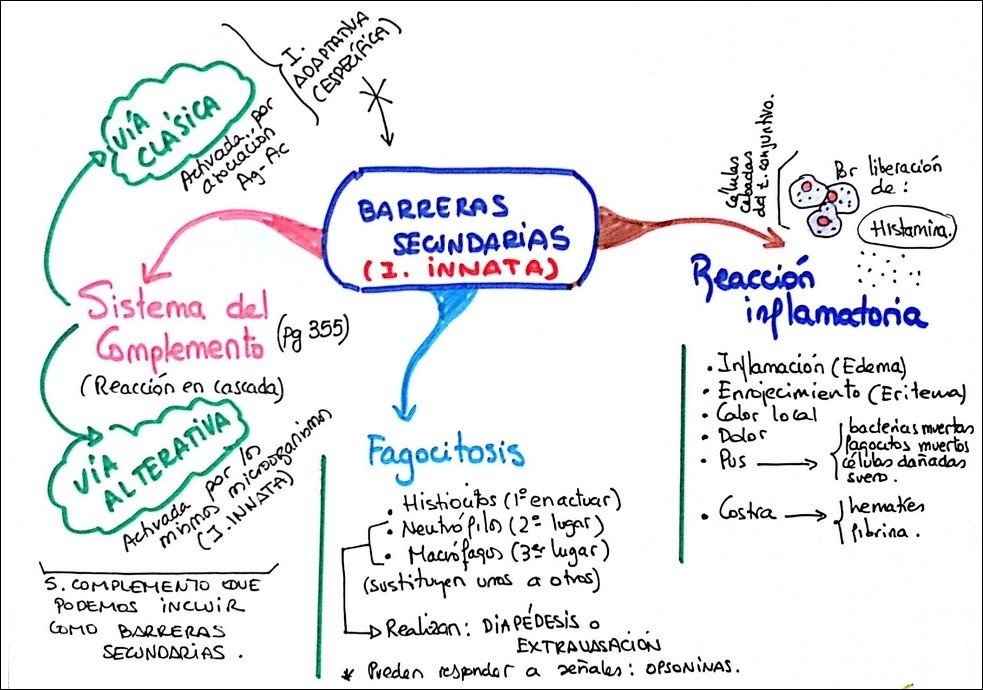 BARRERAS
SECUNDARIAS
(I. INNATA)
Sistema del
Complemento
(Pg 355)
(Reacción en cascada)
VÍA
CLÁSICA
Activada por
asociación
Ag-Ac
I.
ADAPTATIVA
(ESPECÍFICA)
VÍA
ALTERATIVA
Activada por los
mismos microorganismos
(I. INNATA)
S. COMPLEMENTO QUE
PODEMOS INCLUIR
COMO BARRERAS
SECUNDARIAS.
Fagocitosis
• Histiocitos (1º en actuar)
• Neutrófilos (2º lugar)
• Macrófagos (3er lugar)
(sustituyen unos a otros)
Realizan: DIAPÉDESIS o
EXTRAVASACIÓN
* Pueden responder a señales: OPSONINAS.
Reacción
inflamatoria
Células
cebadas
del t. conjuntivo.
Por liberación
de:
Histamina.
• Inflamación (Edema)
• Enrojecimiento (Eritema)
• Calor local
• Dolor
• Pus
bacterias muertas
fagocitos muertos
células dañadas
suero.
• Costra
hematíes
fibrina.